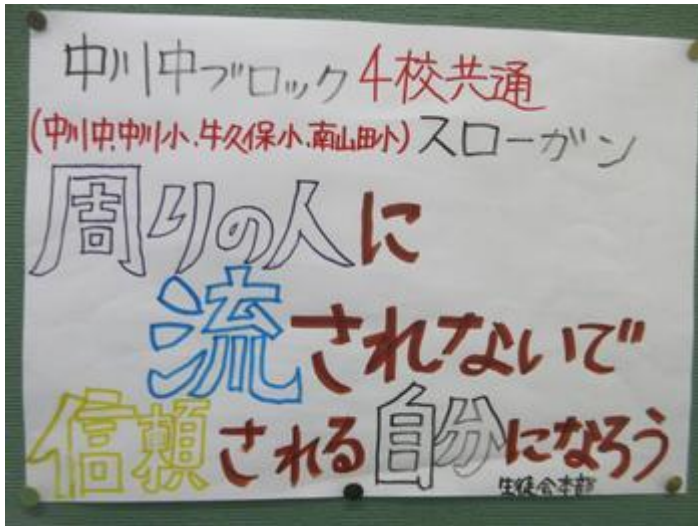 中川中ブロック 4校共通
(中川中.中川小.牛久保小.南山田小) スローガン
周りの人に
流されないで
信頼される自分になろう
生徒会本部